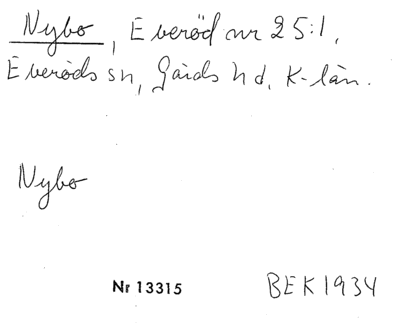 Nybo, Everöd nr 25:1,
Everöds sn, Gärds hd, K-län.
Nybo
Nr 13315
BEK1934